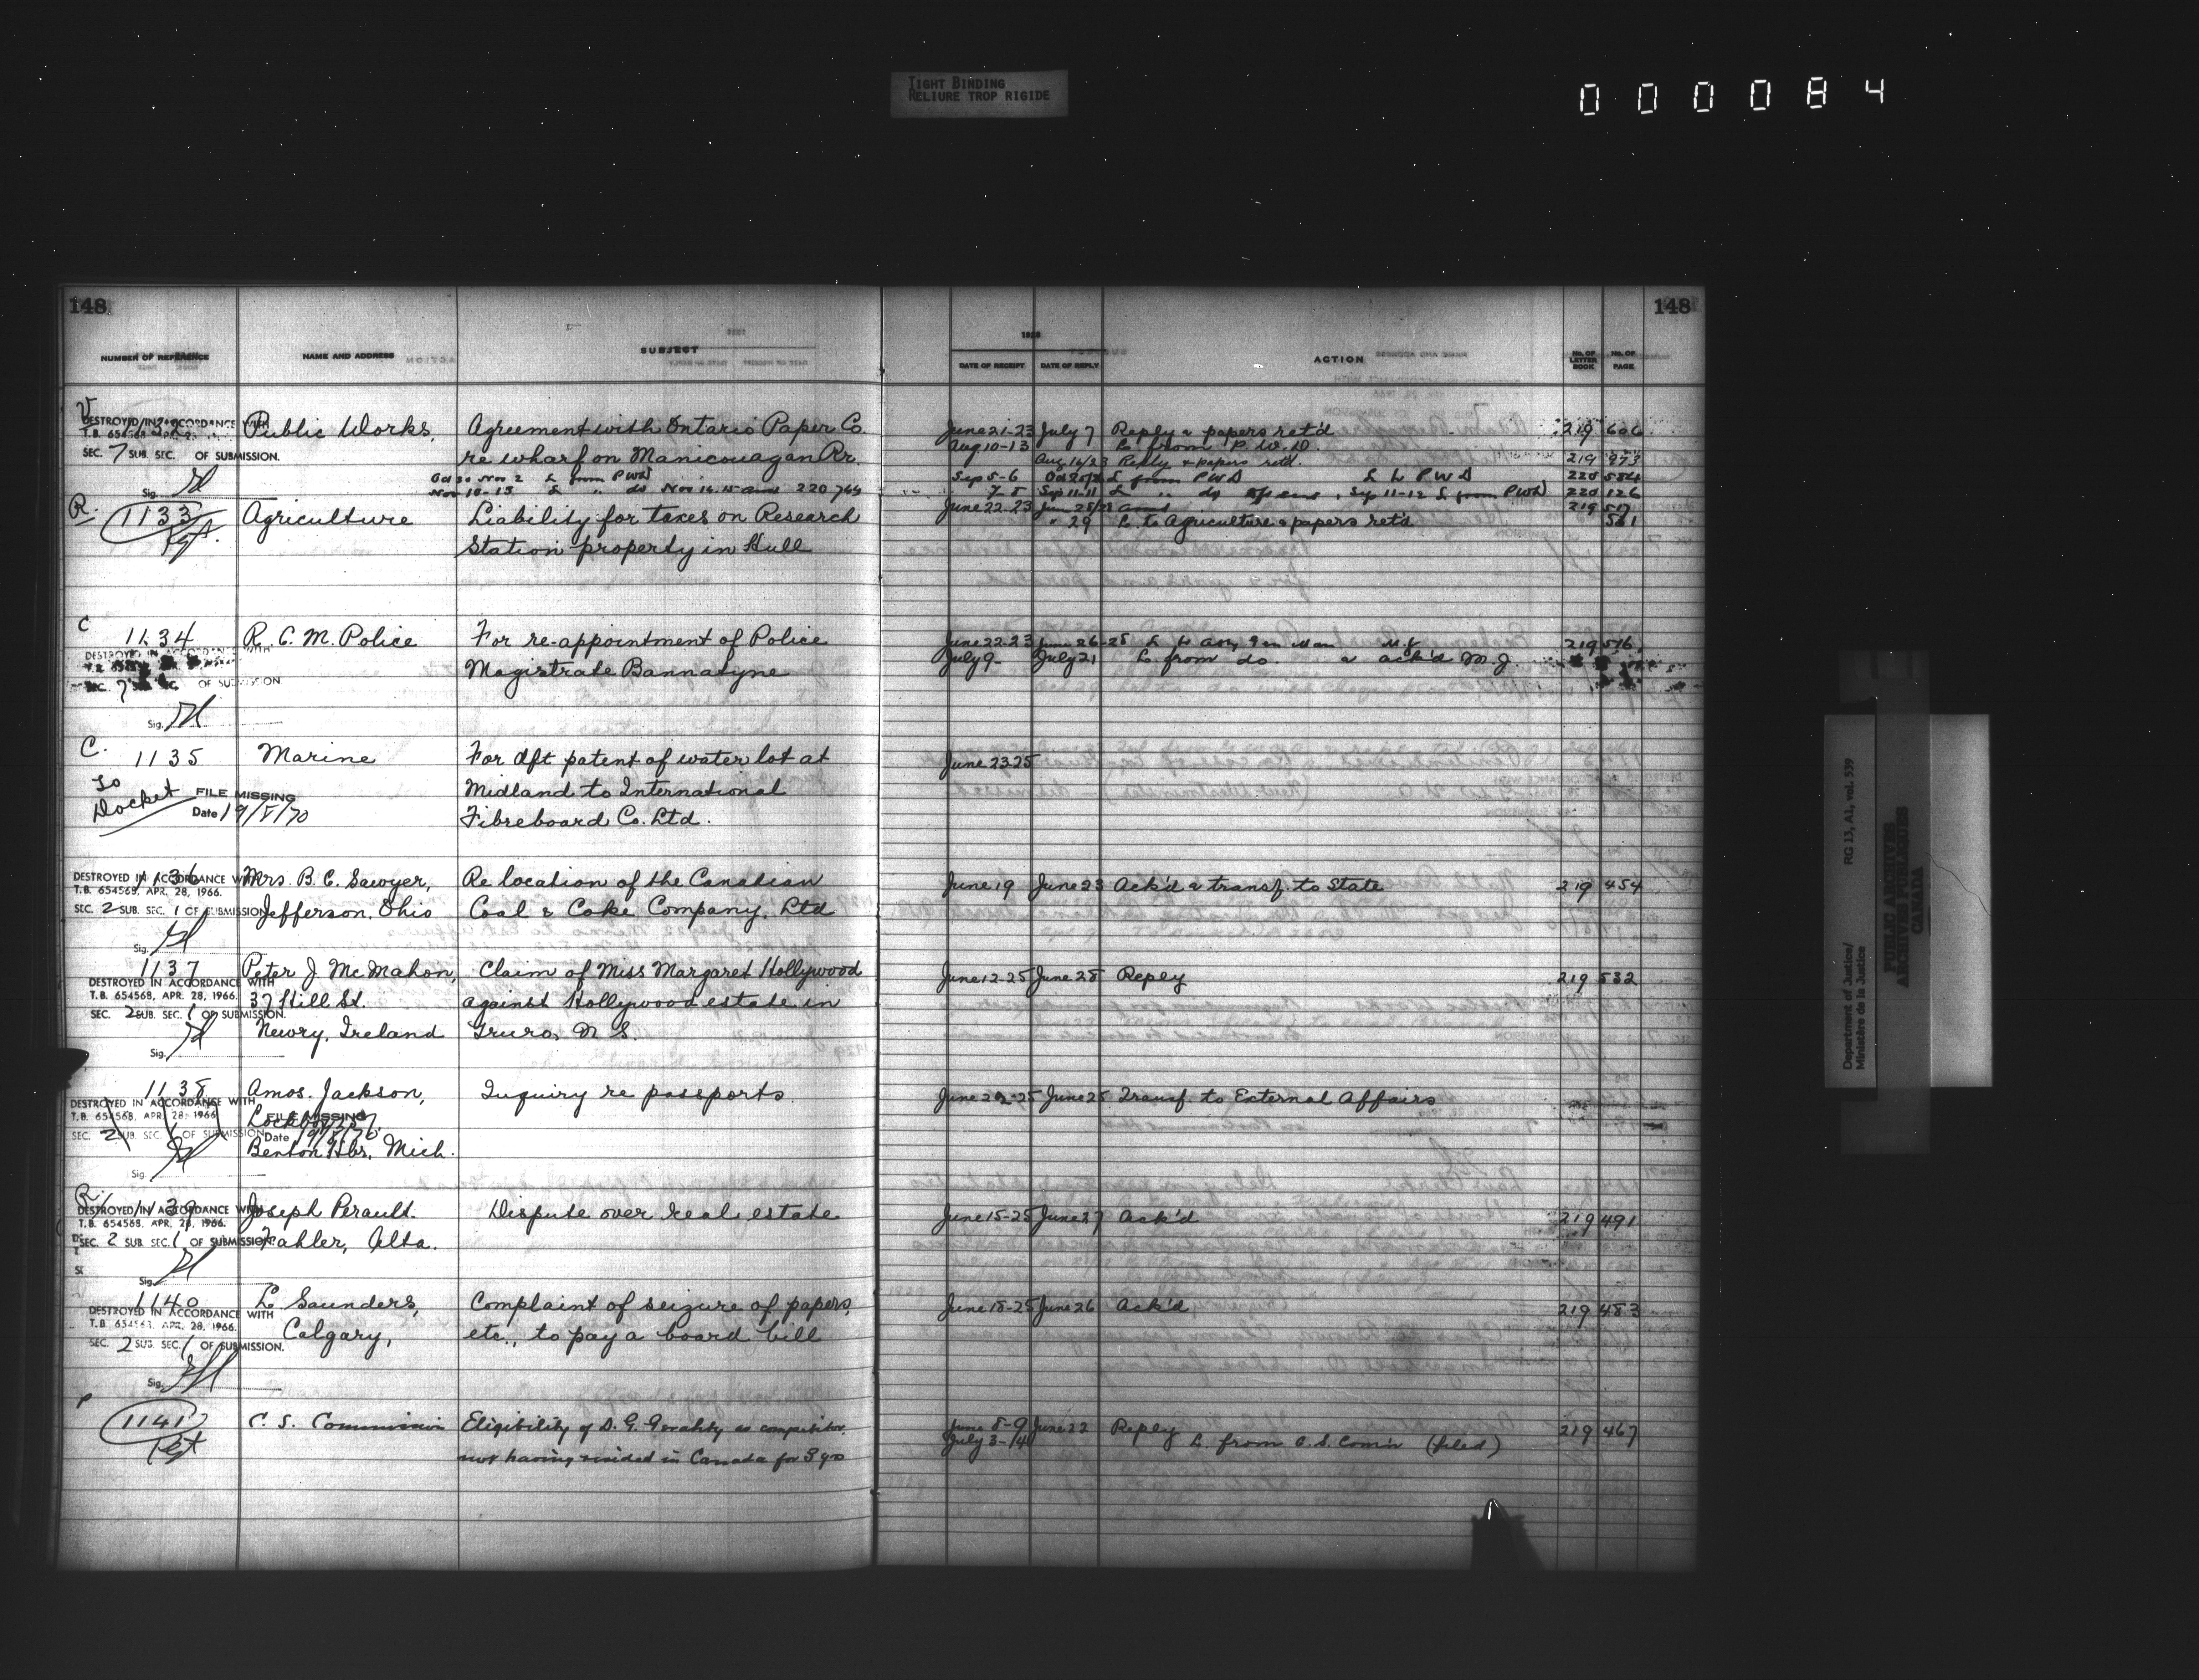 TIGHT BINDING
RELIURE TROP RIGIDE
000084
148 148
NUMBER OF REFERENCE NAME AND ADDRESS SUBJECT 1928 DATE OF RECEIPT DATE OF REPLY ACTION No. OF LETTER BOOK No. OF PAGE
V
1132 Public Works, Agreement with Ontario Paper Co. June 21-23 July 7 Reply & papers ret'd 219 606
DESTROYED IN ACCORDANCE WITH
T.B. 654568 APR. 28
Aug 10-13 L. from P. W. D.
SEC. 7 SUB. SEC. OF SUBMISSION. re wharf on Manicouagan Rr. Aug 16/28 Reply & papers ret'd. 219 973
Oct 30 Nov 2 L from PWD Sep 5-6 Oct 20/28 L from PWD L to PWD 220 584
Sig. Nov 10-13 L " do Nov 14.15 ans 220 766 7-8 Sep 11-11 L " do Sep 11-12 L from PWD 220 126
R.
1133 Agriculture Liability for taxes on Research June 22-23 June 28/28 ansd 219 517
Pgt. " 29 L. to Agriculture & papers ret'd 561
Station property in Hull
C
1134 R. C. M. Police For re-appointment of Police June 22-23 June 26-28 L to Atty Gen Man M.J. 219 516
DESTROYED IN ACCORDANCE WITH
Magistrate Bannatyne July 9- July 21 L. from do. & ack'd M.J.
SEC. 7 OF SUBMISSION
Sig.
C.
1135 Marine For dft patent of water lot at June 23-25
To
Docket FILE MISSING Midland to International
Date 19/V/70 Fibreboard Co. Ltd.
1136 Mrs. B. C. Sawyer, Re location of the Canadian June 19 June 23 Ack'd & transf. to State 219 454
DESTROYED IN ACCORDANCE WITH
T.B. 654568, APR. 28, 1966.
SEC. 2 SUB. SEC. 1 OF SUBMISSION Jefferson, Ohio Coal & Coke Company, Ltd
Sig.
1137 Peter J. McMahon, Claim of Miss Margaret Hollywood June 12-25 June 28 Reply 219 532
DESTROYED IN ACCORDANCE WITH
T.B. 654568, APR. 28, 1966. 37 Hill St. against Hollywood estate in
SEC. 2 SUB. SEC. 1 OF SUBMISSION.
Newry, Ireland Truro, N. S.
Sig.
1138 Amos. Jackson, Inquiry re passports June 22-25 June 25 Transf. to External Affairs
DESTROYED IN ACCORDANCE WITH
T.B. 654568, APR. 28, 1966 FILE MISSING
Lockbox
SEC. 2 SUB. SEC. 1 OF SUBMISSION Date 19/5/70
Benton Hbr, Mich.
Sig.
R
1139 Joseph Perault. Dispute over real estate June 15-25 June 27 Ack'd 219 491
DESTROYED IN ACCORDANCE WITH
T.B. 654568, APR. 28, 1966.
SEC. 2 SUB SEC. 1 OF SUBMISSION. Fahler, Alta.
Sig.
1140 L. Saunders, Complaint of seizure of papers, June 18-25 June 26 Ack'd 219 483
DESTROYED IN ACCORDANCE WITH
T.B. 654568, APR. 28, 1966.
Calgary, etc., to pay a board bill
SEC. 2 SUB. SEC. 1 OF SUBMISSION.
Sig.
1141 C. S. Commission Eligibility of D. G. Geraldty as compositor, June 8-9 June 22 Reply 219 467
Pgt July 3-14 L. from C. S. Com'n (filed)
not having resided in Canada for 3 yrs
Department of Justice/ RG 13, A1, vol. 539
Ministère de la Justice
PUBLIC ARCHIVES
ARCHIVES PUBLIQUES
CANADA